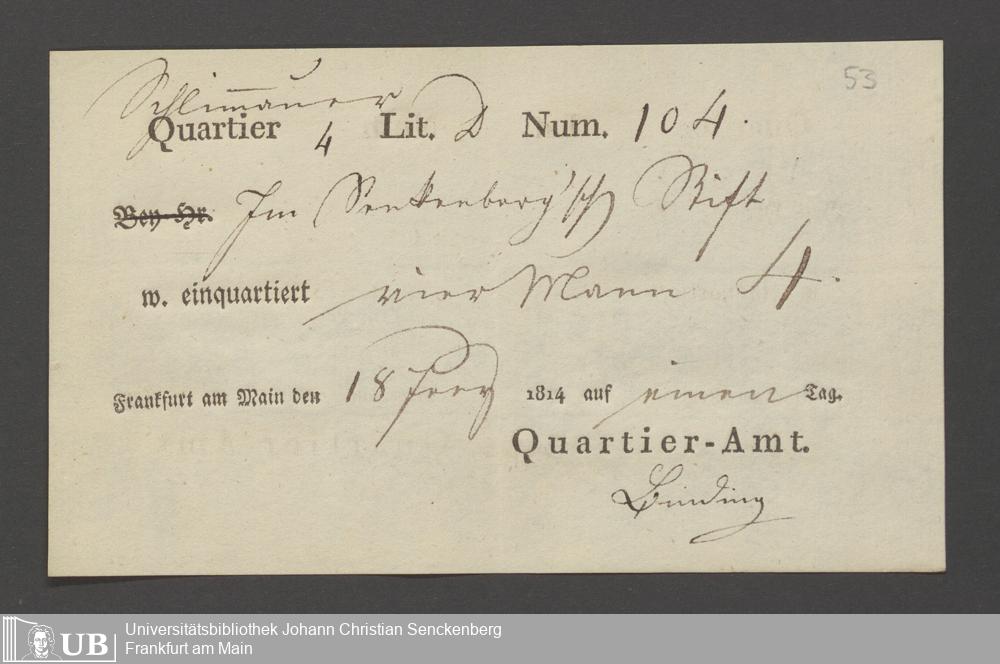 53
Schlimmauer
Quartier 4 Lit. D Num. 104.
Bey Hr. Im Senkenberg'sch Stift
w. einquartiert vier Mann 4.
Frankfurt am Main den 18 Febry 1814 auf einen Tag.
Quartier-Amt.
Binding
UB Universitätsbibliothek Johann Christian Senckenberg
Frankfurt am Main